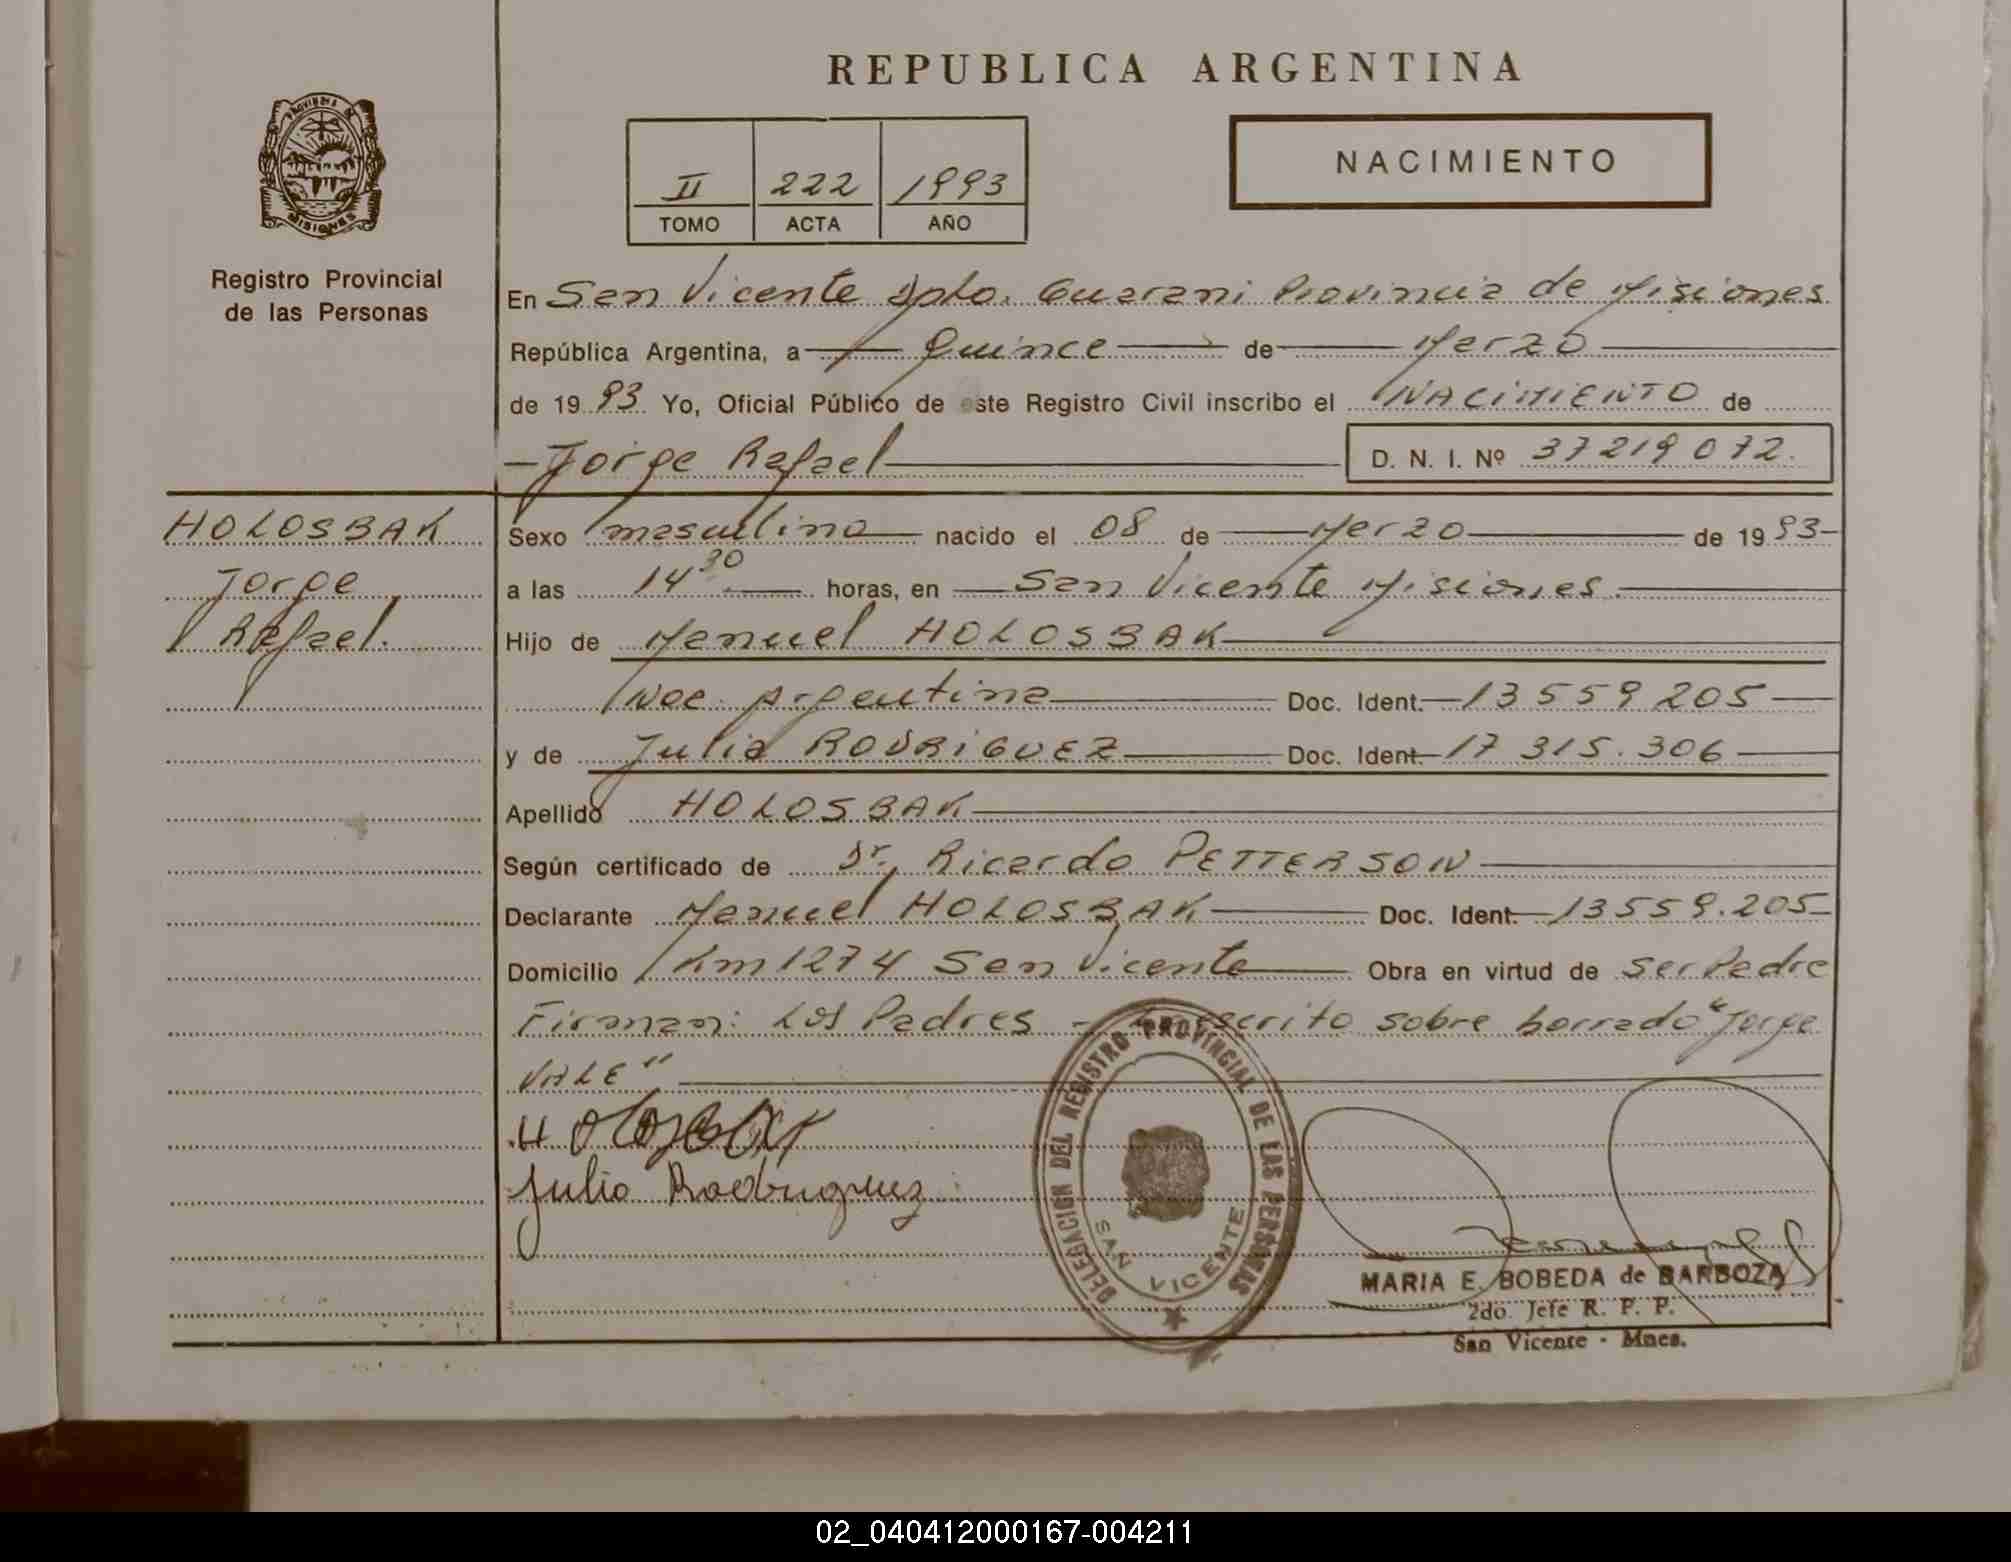 REPUBLICA ARGENTINA
PROVINCIA DE
MISIONES
Registro Provincial
de las Personas
II 222 1993
TOMO ACTA AÑO
NACIMIENTO
En San Vicente Dpto. Guarani Provincia de Misiones
República Argentina, a Quince de Marzo
de 1993 Yo, Oficial Público de este Registro Civil inscribo el NACIMIENTO de
Jorge Rafael D. N. I. Nº 37219072.
HOLOSBAK
Jorge
Rafael.
Sexo masculino nacido el 08 de Marzo de 1993
a las 14 30 horas, en San Vicente Misiones.
Hijo de Manuel HOLOSBAK
Nac. Argentina Doc. Ident. 13559205
y de Julia RODRIGUEZ Doc. Ident. 17 315.306
Apellido HOLOSBAK
Según certificado de Dr. Ricardo PETTERSON
Declarante Manuel HOLOSBAK Doc. Ident. 13559.205
Domicilio Km 1274 San Vicente Obra en virtud de Ser Padre
Firman: Los Padres - escrito sobre borrado "Jorge
VALE"
HOLOSBAK
Julia Rodriguez
DELEGACION DEL REGISTRO PROVINCIAL DE LAS PERSONAS
SAN VICENTE
MARIA E. BOBEDA de BARBOZA
2do. Jefe R. P. P.
San Vicente - Mnes.
02_040412000167-004211